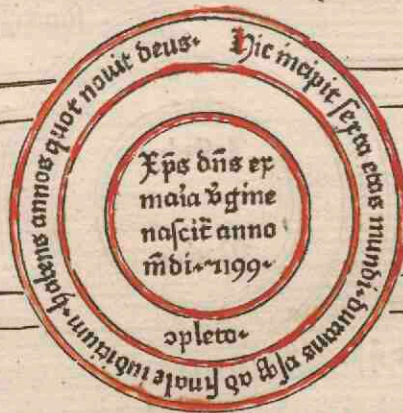 Hic incipit sexta etas mundi· durans usq̨ ad finale iudicium· habens annos quot novit deus·
Xp̄s dn̄s ex
maia v̄gine
nascit̄ anno
m̄di· ·1199·
ꝯpleto·